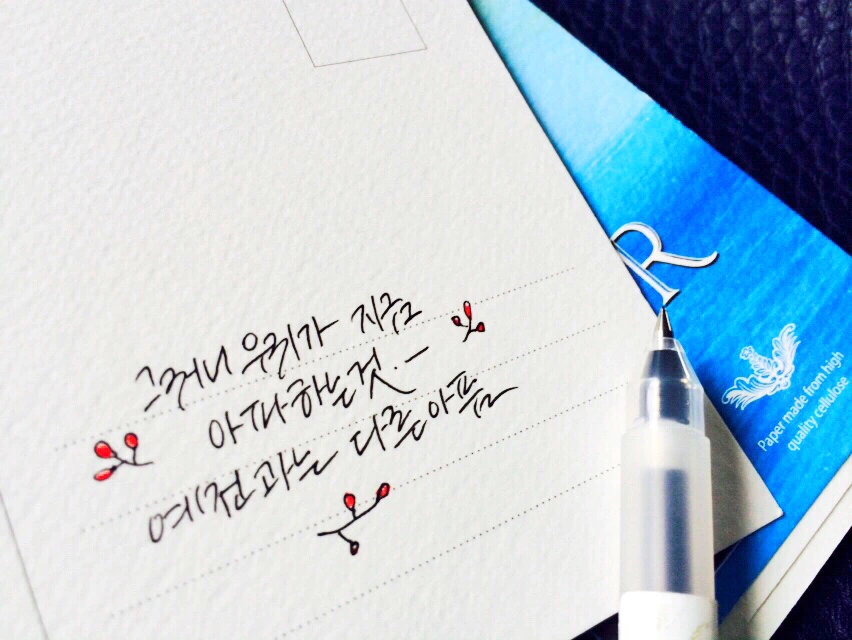 그러니 우리가 지금
아파하는것.–
예전과는 다른아픔
R
Paper made from high
quality cellulose